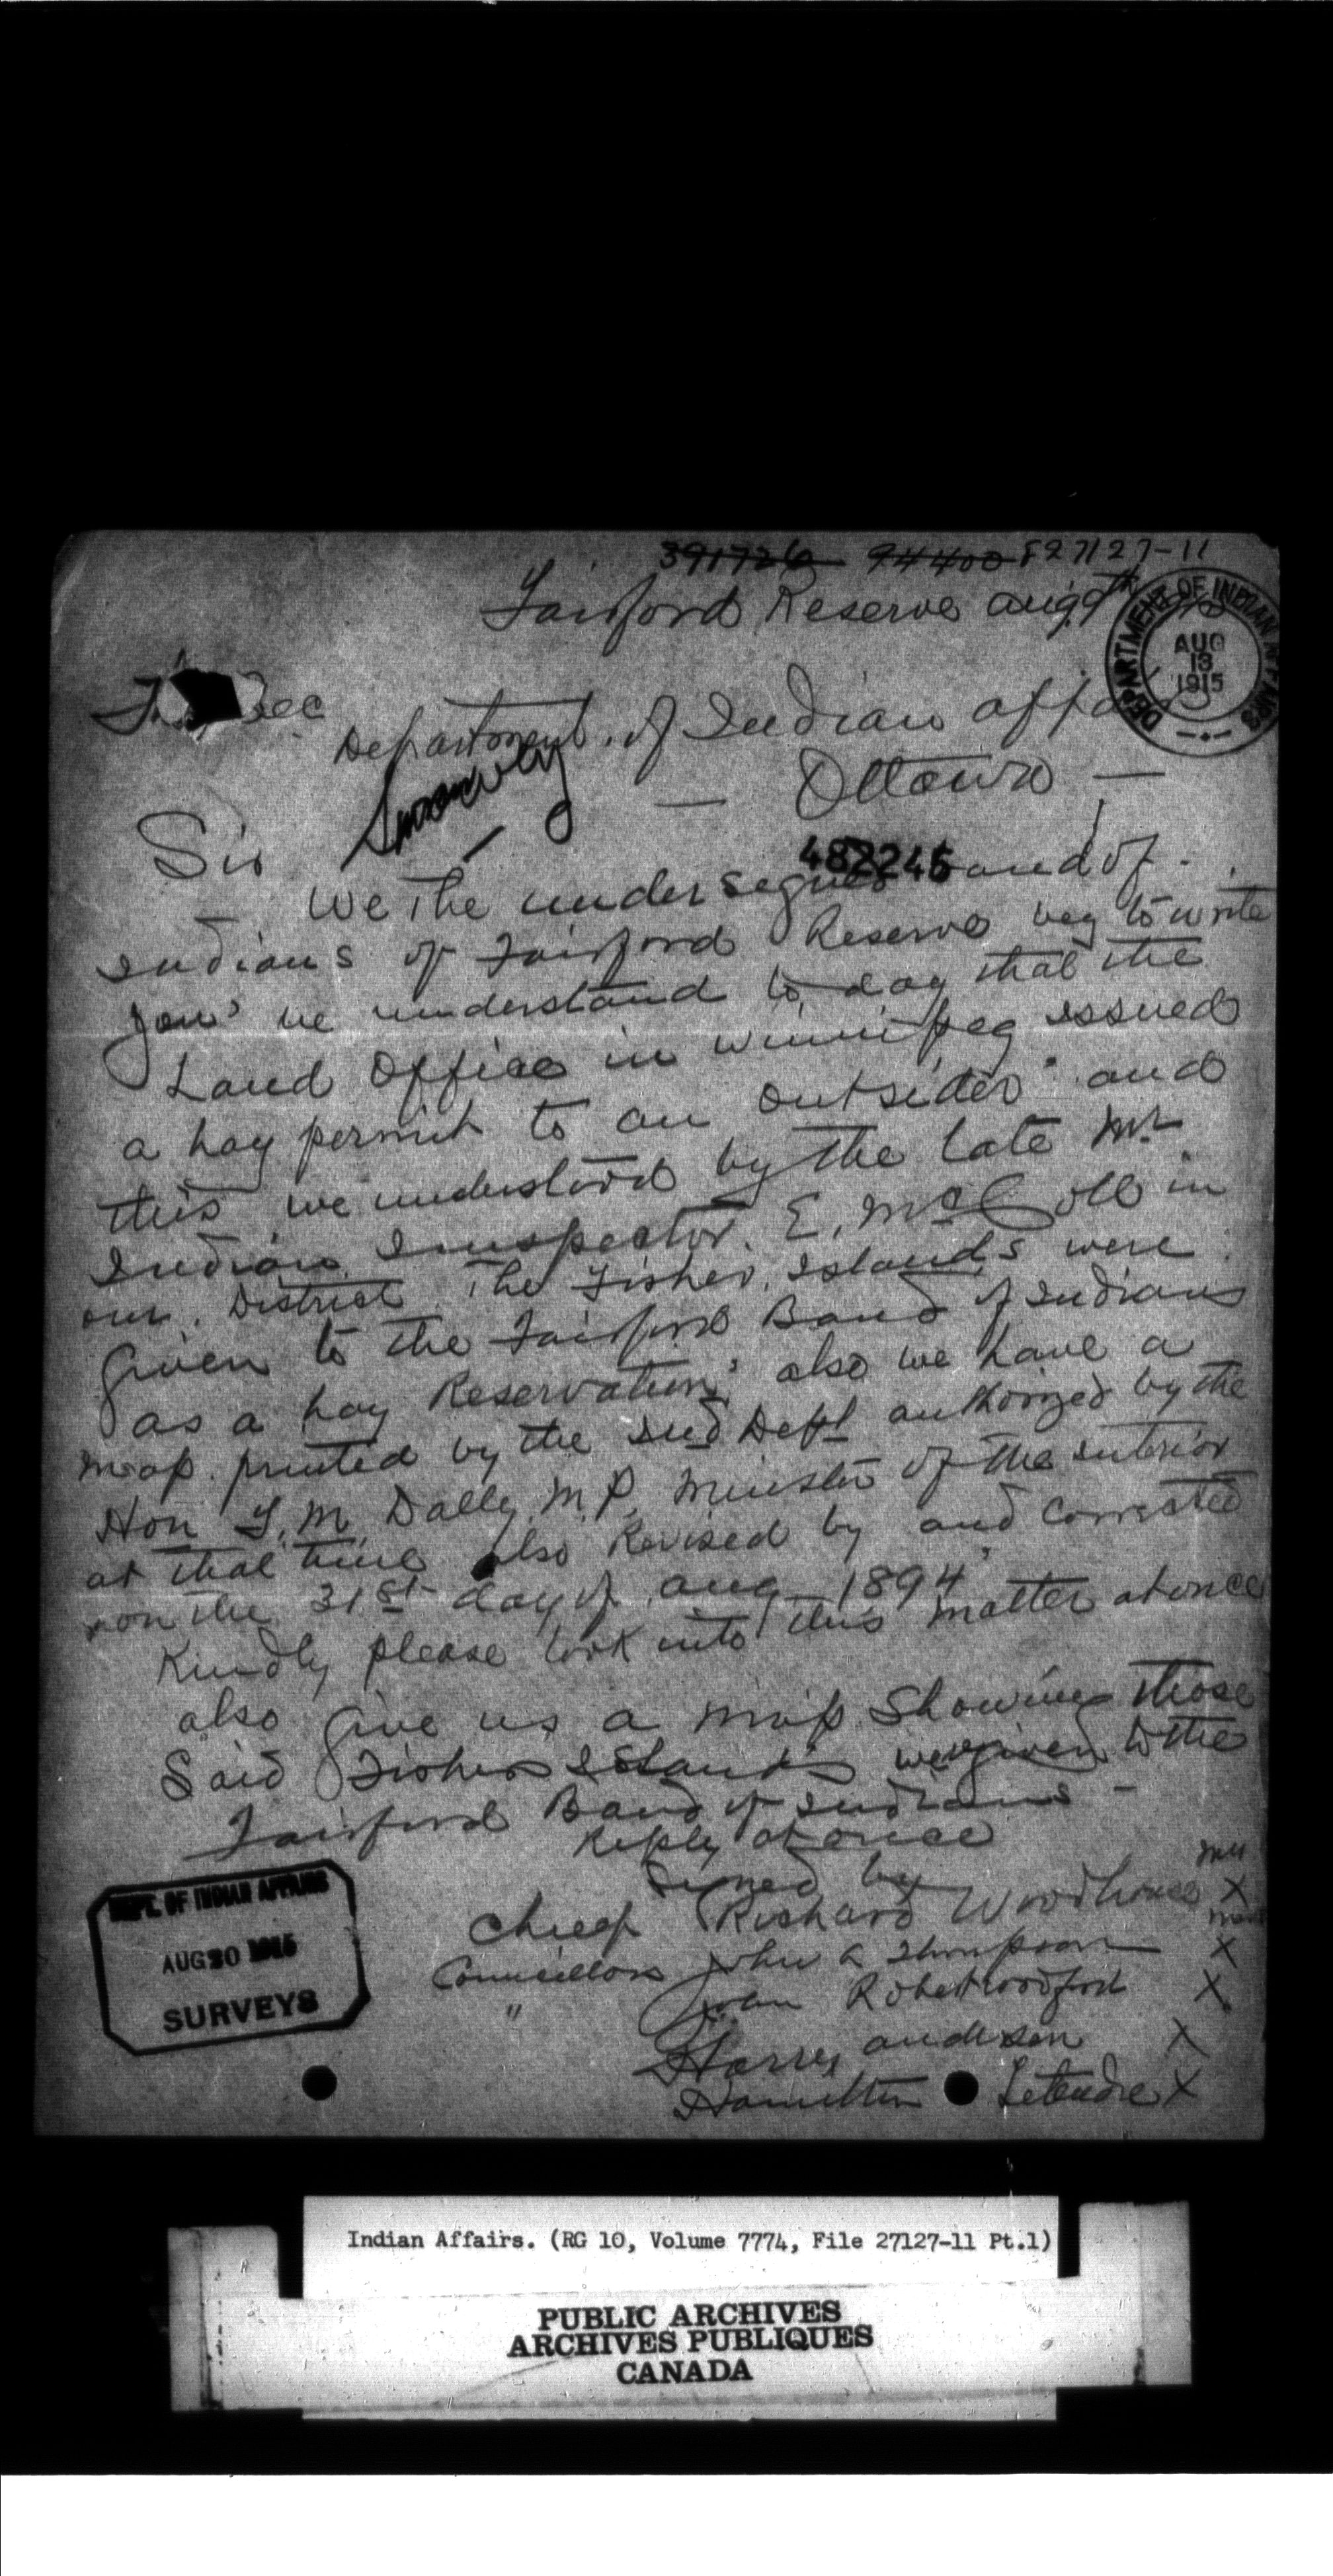 391726 94400 F27127-11
Fairford Reserve Aug 9th
DEPARTMENT OF INDIAN AFFAIRS
AUG
13
1915
Sec
Department of Indian Aff
Ottawa
Sir
482246
We the undersigned Band of
Indians of Fairford Reserve beg to write
you' we understand to day that the
Land Office in Winnipeg issued
a hay permit to an outsider and
this we understood by the late Mr
Indian Innspector. E. McColl in
our District. The Fisher Islands were
given to the Fairford Band of Indians
as a hay Reservation' also we have a
map printed by the Ind Dept authorized by the
Hon T. M. Dally M.P. Minister of the Interior
at that time also Revised by and corrected
on the 31st day of Aug 1894'
Kindly please look into this matter at once
also give us a map showing those
Said Fisher Islands were given to the
Fairford Band of Indians -
Reply at once
Signed by
Chief Richard Woodhouse X
Councillors John A Thompson X
" John Robert Woodford X
Harry Anderson X
Hamilton Letendre X
DEPT. OF INDIAN AFFAIRS
AUG 20 1915
SURVEYS
Indian Affairs. (RG 10, Volume 7774, File 27127-11 Pt.1)
PUBLIC ARCHIVES
ARCHIVES PUBLIQUES
CANADA